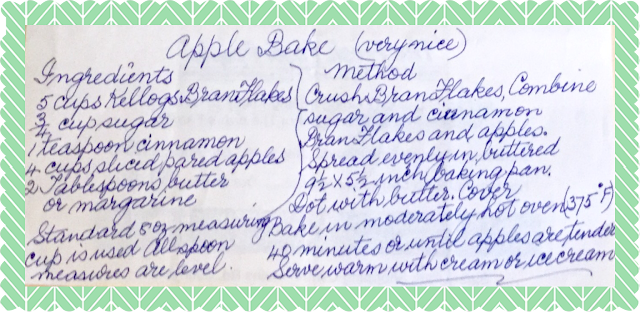 Apple Bake (very nice)
Ingredients
5 cups Kellogs Bran Flakes
3/4 cup sugar
1 teaspoon cinnamon
4 cups sliced pared apples
2 Tablespoons butter
or margarine
Standard 5 oz measuring
cup is used All spoon
measures are level.
Method
Crush Bran Flakes, Combine
sugar and cinnamon
Bran Flakes and apples.
Spread evenly in buttered
9½ x 5½ inch baking pan.
Dot with butter. Cover
Bake in moderately hot oven (375°F)
40 minutes or until apples are tender
Serve warm with cream or ice cream